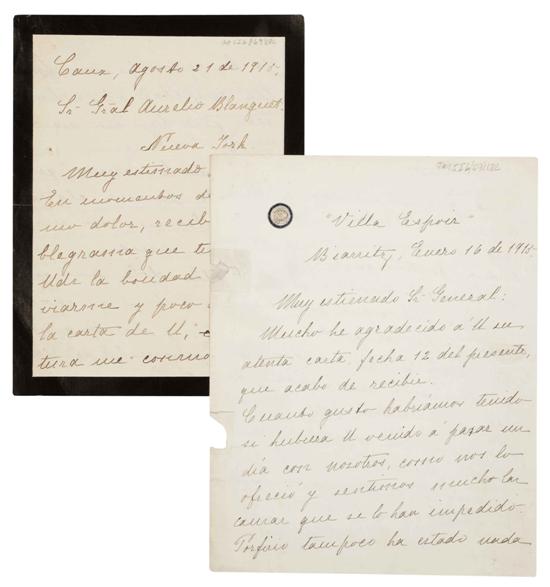 Caux, Agosto 21 de 1915.
Sr. Gral Aurelio Blanquet.
Nueva York
Muy estimado
En momentos de
mo dolor, recib
blegrama que tu
Udr la bondad
viarme y poco
la carta de U,
tura me conmo
"Villa Espoir"
Biarritz, Enero 16 de 1915.
Muy estimado Sr General:
Mucho he agradecido á U su
atenta carta fecha 12 del presente,
que acabo de recibir.
Cuanto gusto habríamos tenido
si hubiera U venido á pasar un
día con nosotros, como nos lo
ofreció y sentimos mucho las
causas que se lo han impedido.
Porfirio tampoco ha estado nada